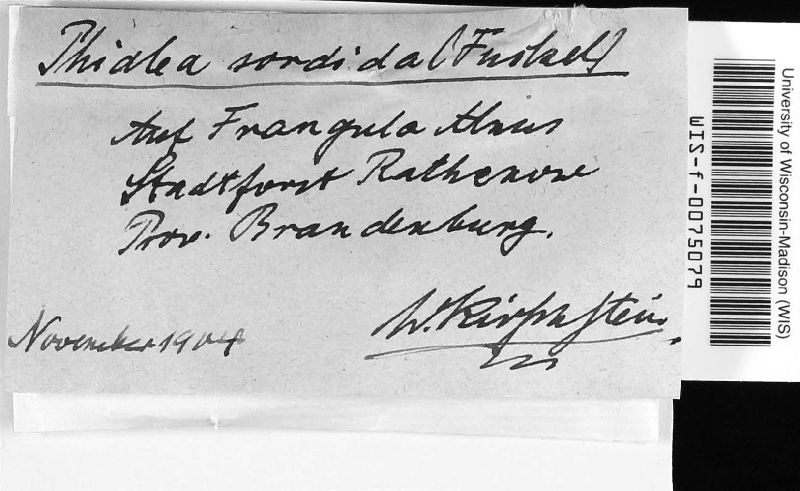 Phialea sordida (Fuckel)
Auf Frangula Alnus
Stadtforst Rathenow
Prov. Brandenburg.
November 1904
W. Kirschstein
University of Wisconsin-Madison (WIS)
WIS-f-0075079